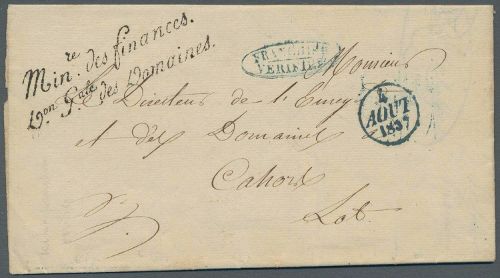 Min.re des finances.
D.on G.ale des Domaines.
FRANCHISE
VERIFIEE
Monsieur
Le Directeur de l'Enreg
et des Domaines
Cahors
Lot.
4
AOUT
1837